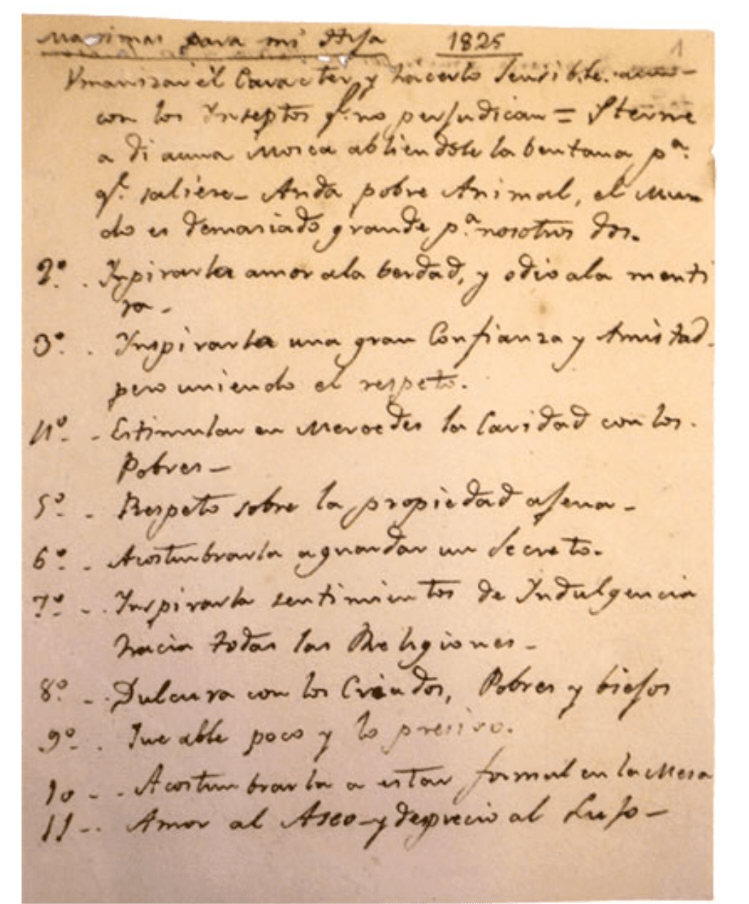 Maximas para mi Hija 1825 1
Vmanizar el Caracter y hacerlo Sensible. aun
con los Ynseptos q.e no perjudican = Sterne
a di auna Mosca abliendole la bentana p.a
q.e saliese – Anda pobre Animal, el Mun
do es demaciado grande p.a nosotros dos.
2º. Ynpirarla amor ala berdad, y odio ala menti
ra –
3º. Ynspirarla una gran Confianza y Amistad.
pero uniendo el respeto.
4º – Estimular en Mercedes la Caridad con los
Pobres –
5º – Respeto sobre la propiedad ajena –
6º – Acostumbrarla aguardar un Secreto.
7º – Ynspirarla sentimientos de Yndulgencia
hacia todas las Religiones –
8º – Dulcura con los Criados, Pobres y biejos
9º. Que able poco y lo presiso.
10 – Acostumbrarla a estar formal en la Mesa
11 – Amor al Aseo – y desprecio al Lujo –